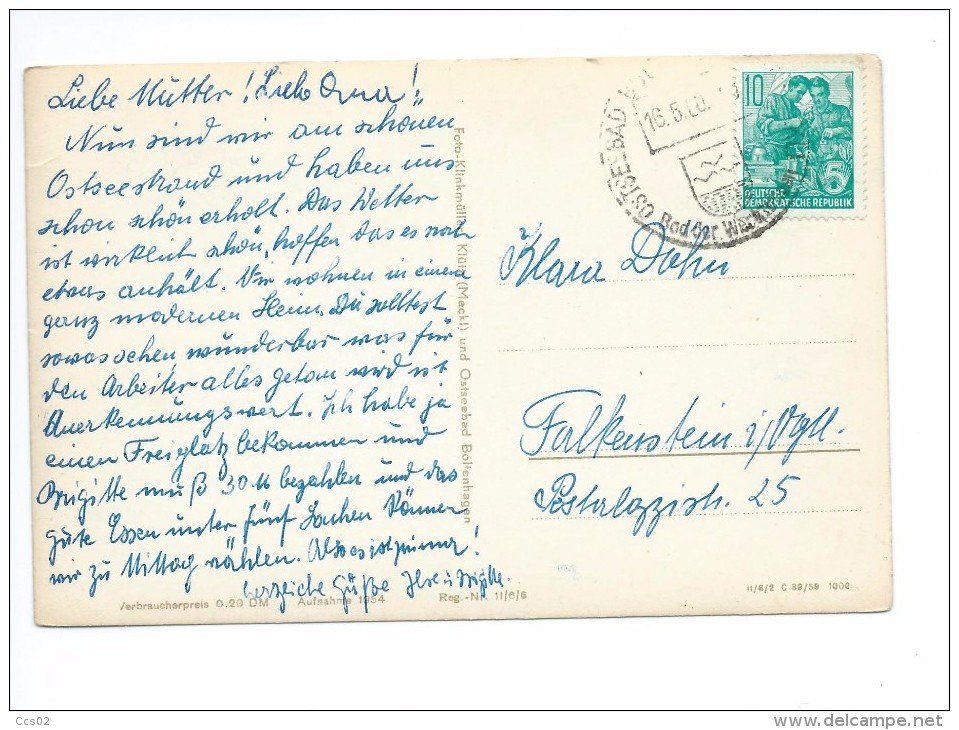 Liebe Mutter! Liebe Oma!
Nun sind wir am schönen
Ostseestrand und haben uns
schon schön erholt. Das Wetter
ist wirklich schön, hoffen das es noch
etwas anhält. Wir wohnen in einem
ganz modernen Heim. Du solltest
sowas sehen, wunderbar was für
den Arbeiter alles getan wird ist
Anerkennungswert. Ich habe ja
einen Freiplatz bekommen und
Brigitte muß 30 M bezahlen und das
gute Essen unter fünf Sachen können
wir zu Mittag wählen. Also es ist prima!
herzliche Grüße Ilse u Brigitte.
Verbraucherpreis 0.20 DM Aufnahme 1954 Reg.-Nr. 11/6/6
Foto-Klinkmüller, Klütz (Meckl) und Ostseebad Boltenhagen
OSTSEEBAD
16.5.60
Bad der
10
5
DEUTSCHE
DEMOKRATISCHE REPUBLIK
Klara Dohn
Falkenstein i/Vgtl.
Pestalozzistr. 25
II/6/2 C 89/59 1006
Ccs02
www.delcampe.net